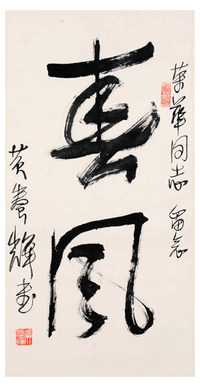 荣華同志 留念
春風
黄養輝書